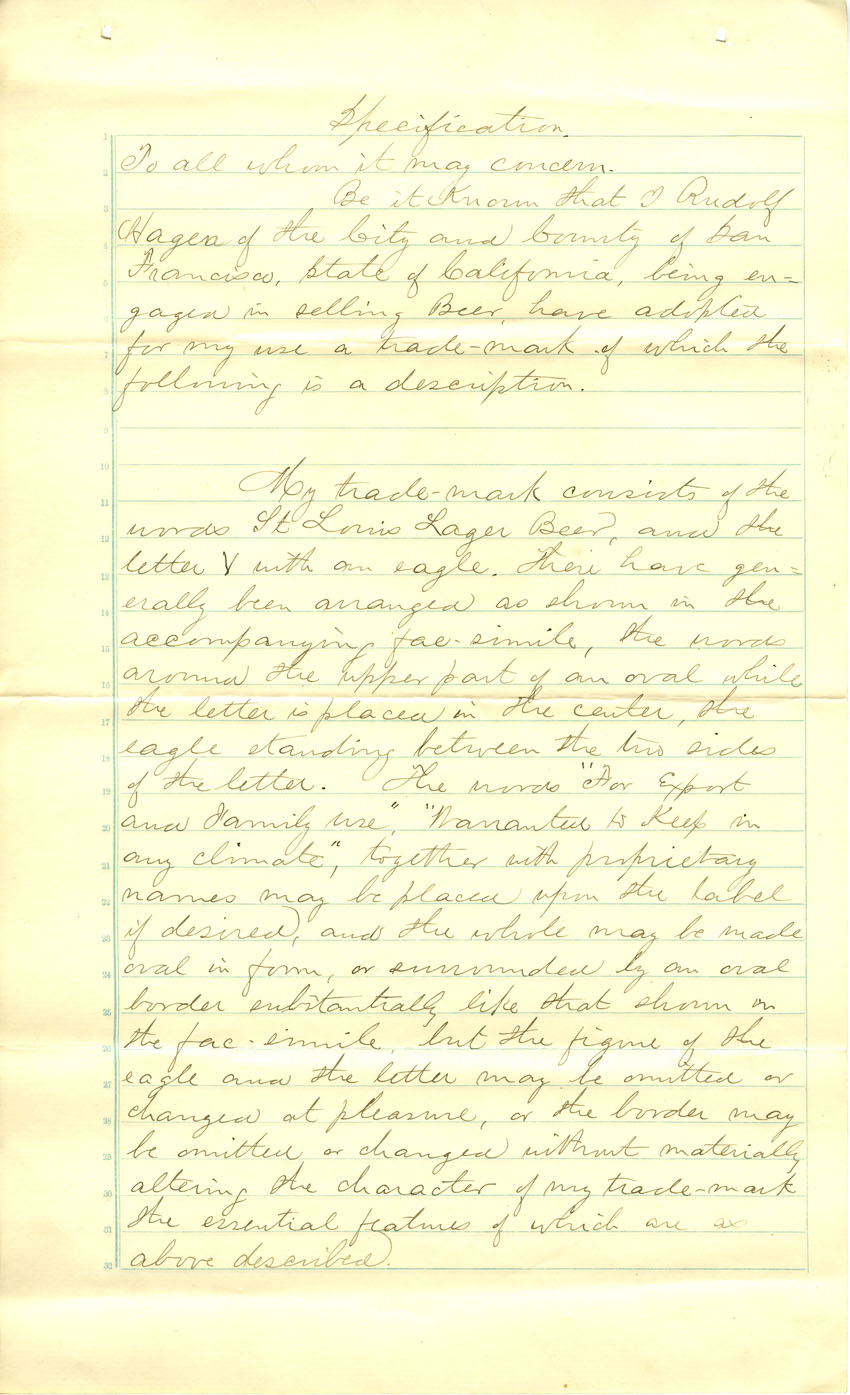 Specification.
To all whom it may concern.
Be it Known that I Rudolf
Hagen of the City and County of San
Francisco, State of California, being en=
gaged in selling Beer, have adopted
for my use a trade-mark of which the
following is a description.
My trade-mark consists of the
words St Louis Lager Beer, and the
letter V with an eagle. These have gen=
erally been arranged as shown in the
accompanying fac-simile, the words
around the upper part of an oval while
the letter is placed in the center, the
eagle standing between the two sides
of the letter. The words "For Export
and Family use", "Warranted to Keep in
any climate", together with proprietary
names may be placed upon the label
if desired, and the whole may be made
oval in form, or surrounded by an oval
border substantially like that shown in
the fac-simile, but the figure of the
eagle and the letter may be omitted or
changed at pleasure, or the border may
be omitted or changed without materially
altering the character of my trade-mark
the essential features of which are as
above described.